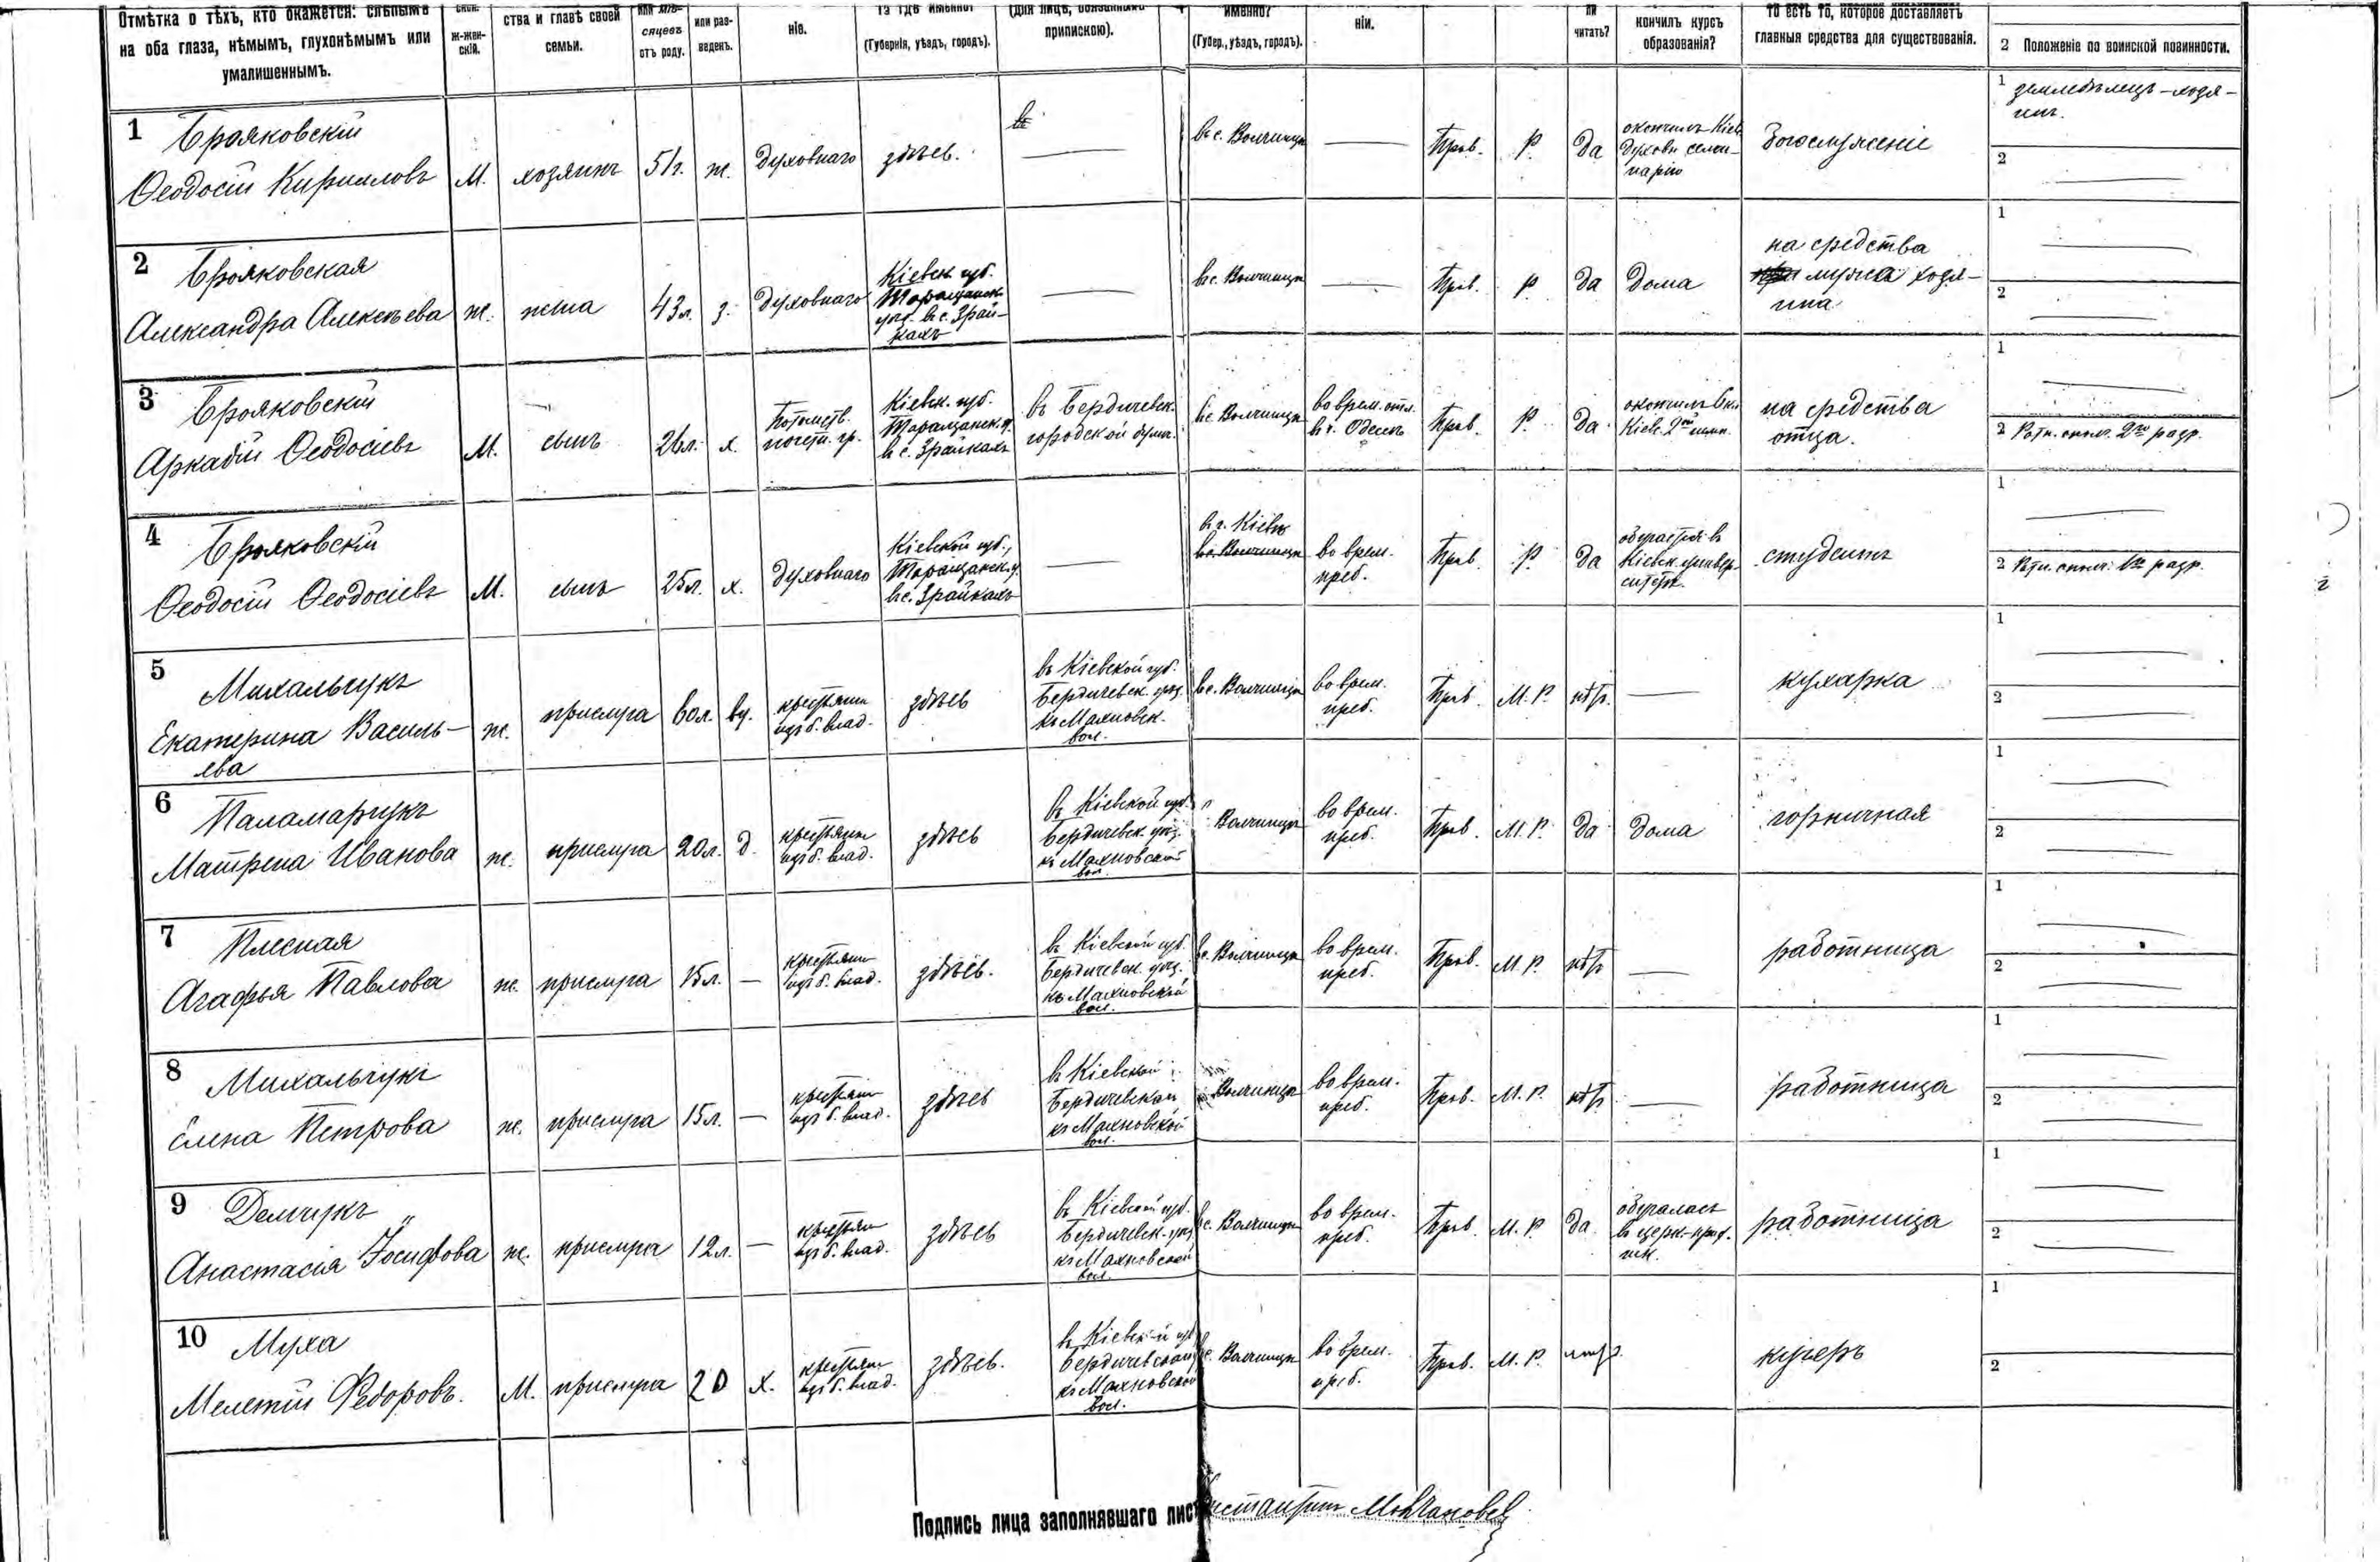 Отмѣтка о тѣхъ, кто окажется: слѣпымъ
на оба глаза, нѣмымъ, глухонѣмымъ или
умалишеннымъ.
ж-жен-
скій.
ства и главѣ своей
семьи.
или мѣ-
сяцевъ
отъ роду.
или раз-
веденъ.
ніе.
(Губернія, уѣздъ, городъ).
припискою).
именно?
(Губер., уѣздъ, городъ).
ніи.
ли
читать?
кончилъ курсъ
образованія?
то есть то, которое доставляетъ
главныя средства для существованія.
2 Положеніе по воинской повинности.
1 Брояковскій
Ѳеодосій Кирилловъ
М.
хозяинъ
51г.
ж.
духовнаго
здѣсь.
въ с. Волчинцы
Прав.
Р.
Да
окончилъ Кіев.
духовн. семи-
нарію
Богослуженіе
1 земледѣлецъ-хозя-
инъ.
2
2 Брояковская
Александра Алексѣева
ж.
жена
43л.
з.
духовнаго
Кіевск. губ.
Таращанск.
уѣз. въ с. Зрай-
кахъ
въ с. Волчинцы
Прав.
Р
да
Дома
на средства
мужа хозя-
ина
1
2
3 Брояковскій
Аркадій Ѳеодосіевъ
М.
сынъ
26л.
х.
Потомств.
почетн. гр.
Кіевск. губ.
Таращанск. у.
въ с. Зрайкахъ
въ Бердичевск.
городской думѣ.
въ с. Волчинцы
во врем. отл.
въ г. Одессѣ
Прав.
Р.
да
Кіев. 2ой гимн.
на средства
отца.
1
2 Ратн. ополч. 2го разр.
4 Брояковскій
Ѳеодосій Ѳеодосіевъ
М.
сынъ
25л.
х.
духовнаго
Кіевской губ.,
Таращанск. у.
въ с. Зрайкахъ
въ г. Кіевѣ
въ с. Волчинцы
во врем.
преб.
Прав.
Р.
да
обучается въ
Кіевск. универ-
ситетѣ.
студентъ
1
2 Ратн. ополч. 1го разр.
5 Михальчукъ
Екатерина Василь-
ева
ж.
прислуга
60л.
вд.
крестьянъ
изъ б. влад.
здѣсь
въ Кіевской губ.
Бердичевск. уѣз.
къ Махновск.
вол.
въ с. Волчинцы
во врем.
преб.
Прав.
М.Р.
нѣтъ.
кухарка
1
2
6 Паламарчукъ
Матрена Иванова
ж.
прислуга
20л.
д.
крестьянъ
изъ б. влад.
здѣсь
въ Кіевской губ.
Бердичевск. уѣз.
къ Махновской
вол.
Волчинцы
во врем.
преб.
Прав.
М.Р.
да
дома
горничная
1
2
7 Плесная
Агафья Павлова
ж.
прислуга
15л.
крестьянъ
изъ б. влад.
здѣсь.
въ Кіевской губ.
Бердичевск. уѣз.
къ Махновской
вол.
с. Волчинцы
во врем.
преб.
Прав.
М.Р.
нѣтъ
работница
1
2
8 Михальчукъ
Елена Петрова
ж.
прислуга
15л.
крестьянъ
изъ б. влад.
здѣсь
въ Кіевской
Бердичевской
къ Махновской
вол.
Волчинцы
во врем.
преб.
Прав.
М.Р.
нѣтъ
работница
1
2
9 Демчукъ
Анастасія Іосифова
ж.
прислуга
12л.
крестьян
изъ б. влад.
здѣсь
въ Кіевской губ.
Бердичевск. уѣз.
къ Махновской
вол.
с. Волчинцы
во врем.
преб.
Прав.
М.Р.
да.
обучалась
въ церк.-прих.
шк.
работница
1
2
10 Муха
Мелетій Ѳедоровъ.
М.
прислуга
20
х.
крестьян
изъ б. влад.
здѣсь.
въ Кіевской губ.
Бердичевской
къ Махновской
вол.
с. Волчинцы
во врем.
преб.
Прав.
М.Р.
нѣтъ.
кучеръ
1
2
Подпись лица заполнявшаго лист